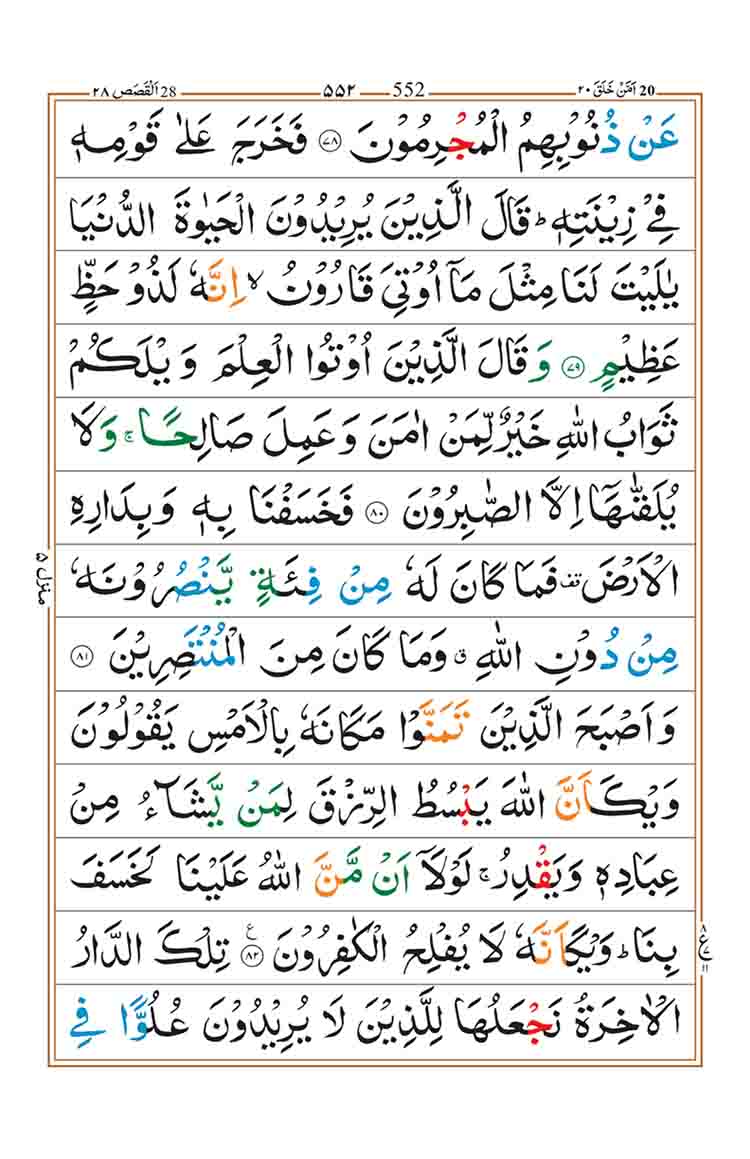 20 اَمَّنْ خَلَقَ ٢٠
552 ۵۵۲
28 اَلْقَصَص ٢٨
عَنْ ذُنُوْبِهِمُ الْمُجْرِمُوْنَ ۝۷۸ فَخَرَجَ عَلٰى قَوْمِهٖ
فِيْ زِيْنَتِهٖ ؕ قَالَ الَّذِيْنَ يُرِيْدُوْنَ الْحَيٰوةَ الدُّنْيَا
يٰلَيْتَ لَنَا مِثْلَ مَاۤ اُوْتِيَ قَارُوْنُ ۙ اِنَّهٗ لَذُوْ حَظٍّ
عَظِيْمٍ ۝۷۹ وَقَالَ الَّذِيْنَ اُوْتُوا الْعِلْمَ وَيْلَكُمْ
ثَوَابُ اللّٰهِ خَيْرٌ لِّمَنْ اٰمَنَ وَعَمِلَ صَالِحًا ۚ وَلَا
يُلَقّٰىهَاۤ اِلَّا الصّٰبِرُوْنَ ۝۸۰ فَخَسَفْنَا بِهٖ وَبِدَارِهِ
الْاَرْضَ قف فَمَا كَانَ لَهٗ مِنْ فِئَةٍ يَّنْصُرُوْنَهٗ
مِنْ دُوْنِ اللّٰهِ ق وَمَا كَانَ مِنَ الْمُنْتَصِرِيْنَ ۝۸۱
وَاَصْبَحَ الَّذِيْنَ تَمَنَّوْا مَكَانَهٗ بِالْاَمْسِ يَقُوْلُوْنَ
وَيْكَاَنَّ اللّٰهَ يَبْسُطُ الرِّزْقَ لِمَنْ يَّشَآءُ مِنْ
عِبَادِهٖ وَيَقْدِرُ ۚ لَوْلَاۤ اَنْ مَّنَّ اللّٰهُ عَلَيْنَا لَخَسَفَ
بِنَا ؕ وَيْكَاَنَّهٗ لَا يُفْلِحُ الْكٰفِرُوْنَ ۝۸۲ ع تِلْكَ الدَّارُ
الْاٰخِرَةُ نَجْعَلُهَا لِلَّذِيْنَ لَا يُرِيْدُوْنَ عُلُوًّا فِي
منزل ۵
۸ ع ۷ ۱۱